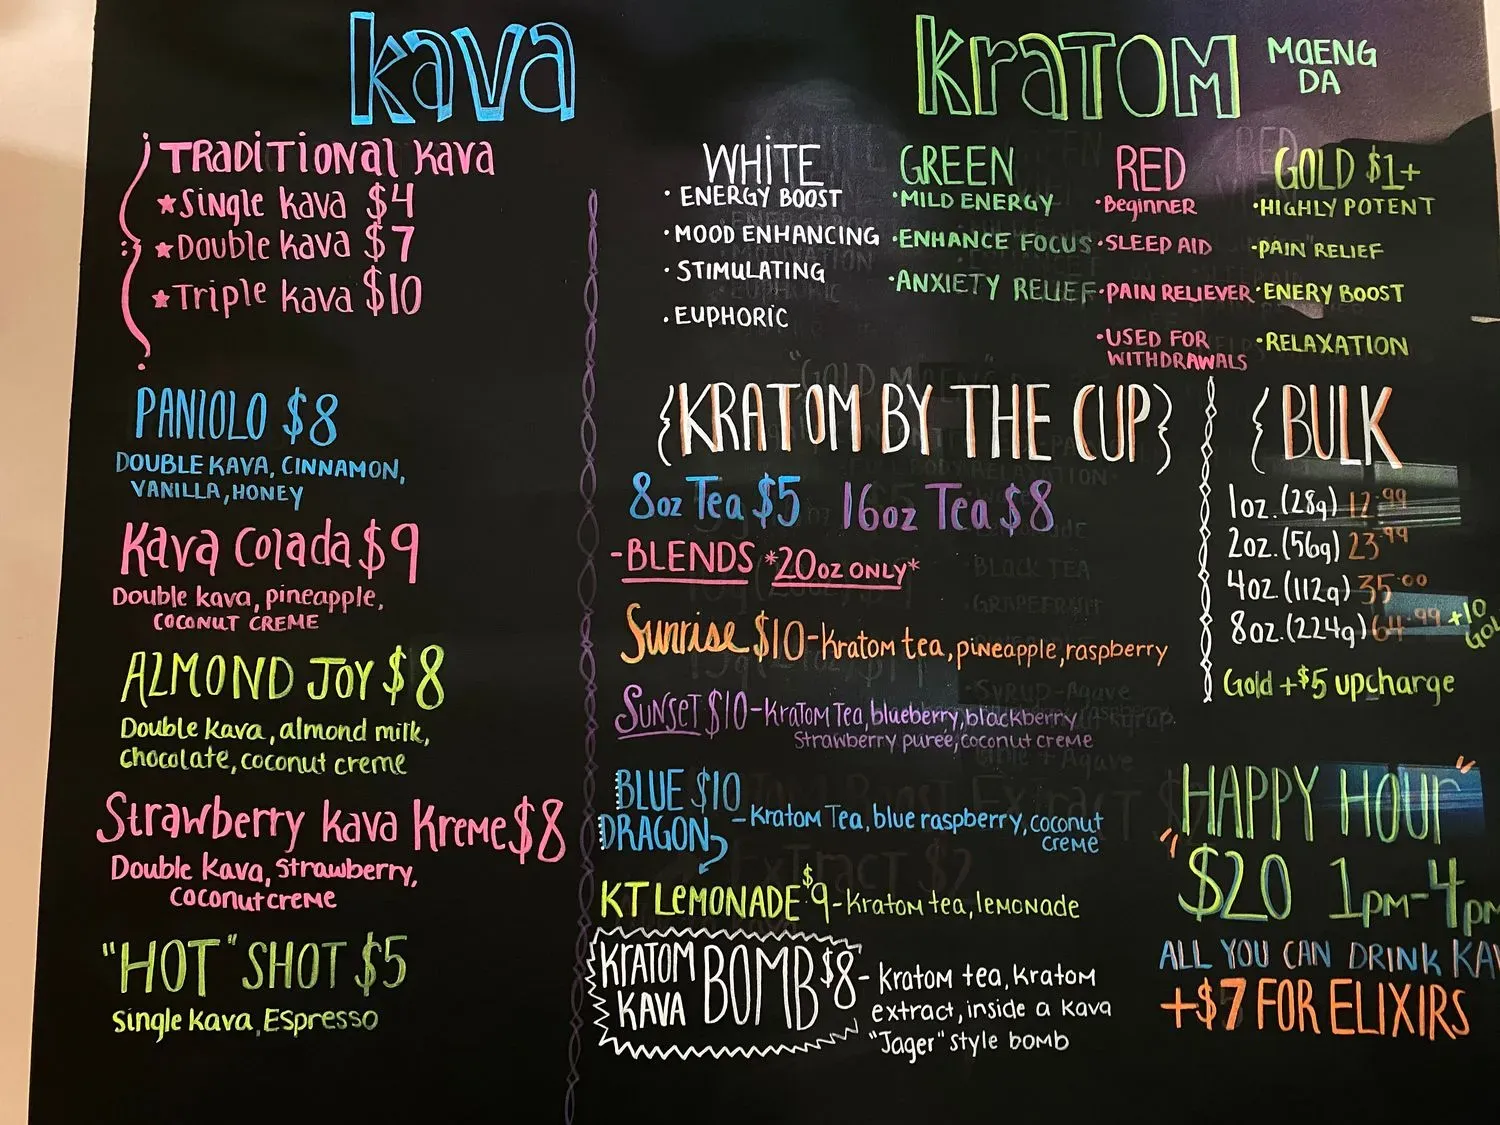 kava
TRADITIONAL KAVA
★Single kava $4
★Double kava $7
★Triple kava $10
PANIOLO $8
DOUBLE KAVA, CINNAMON,
VANILLA, HONEY
Kava Colada $9
Double kava, pineapple,
COCONUT CREME
ALMOND JOY $8
Double Kava, almond milk,
chocolate, coconut creme
Strawberry kava Kreme $8
Double Kava, Strawberry,
Coconut creme
"HOT" SHOT $5
single Kava, Espresso
kratom MAENG
DA
WHITE
• ENERGY BOOST
• MOOD ENHANCING
• STIMULATING
• EUPHORIC
GREEN
• MILD ENERGY
• ENHANCE FOCUS
• ANXIETY RELIEF
RED
• Beginner
• SLEEP AID
• PAIN RELIEVER
• USED FOR
WITHDRAWALS
GOLD $1+
• HIGHLY POTENT
• PAIN RELIEF
• ENERY BOOST
• RELAXATION
{KRATOM BY THE CUP}
8oz Tea $5 16oz Tea $8
- BLENDS *20oz ONLY*
Sunrise $10 - Kratom tea, pineapple, raspberry
SUNSET $10 - Kratom Tea, blueberry, blackberry
Strawberry purée, coconut creme
BLUE $10
DRAGON - Kratom Tea, blue raspberry, coconut
creme
KT LEMONADE $9 - Kratom tea, lemonade
KRATOM
KAVA BOMB $8 - Kratom tea, Kratom
extract, inside a kava
"Jager" style bomb
{ BULK
1oz. (28g) 12.99
2oz. (56g) 23.99
4oz (112g) 35.00
8oz. (224g) 64.99 +10
Gold +$5 upcharge
"HAPPY HOUR"
$20 1pm-4pm
ALL YOU CAN DRINK
+$7 FOR ELIXIRS